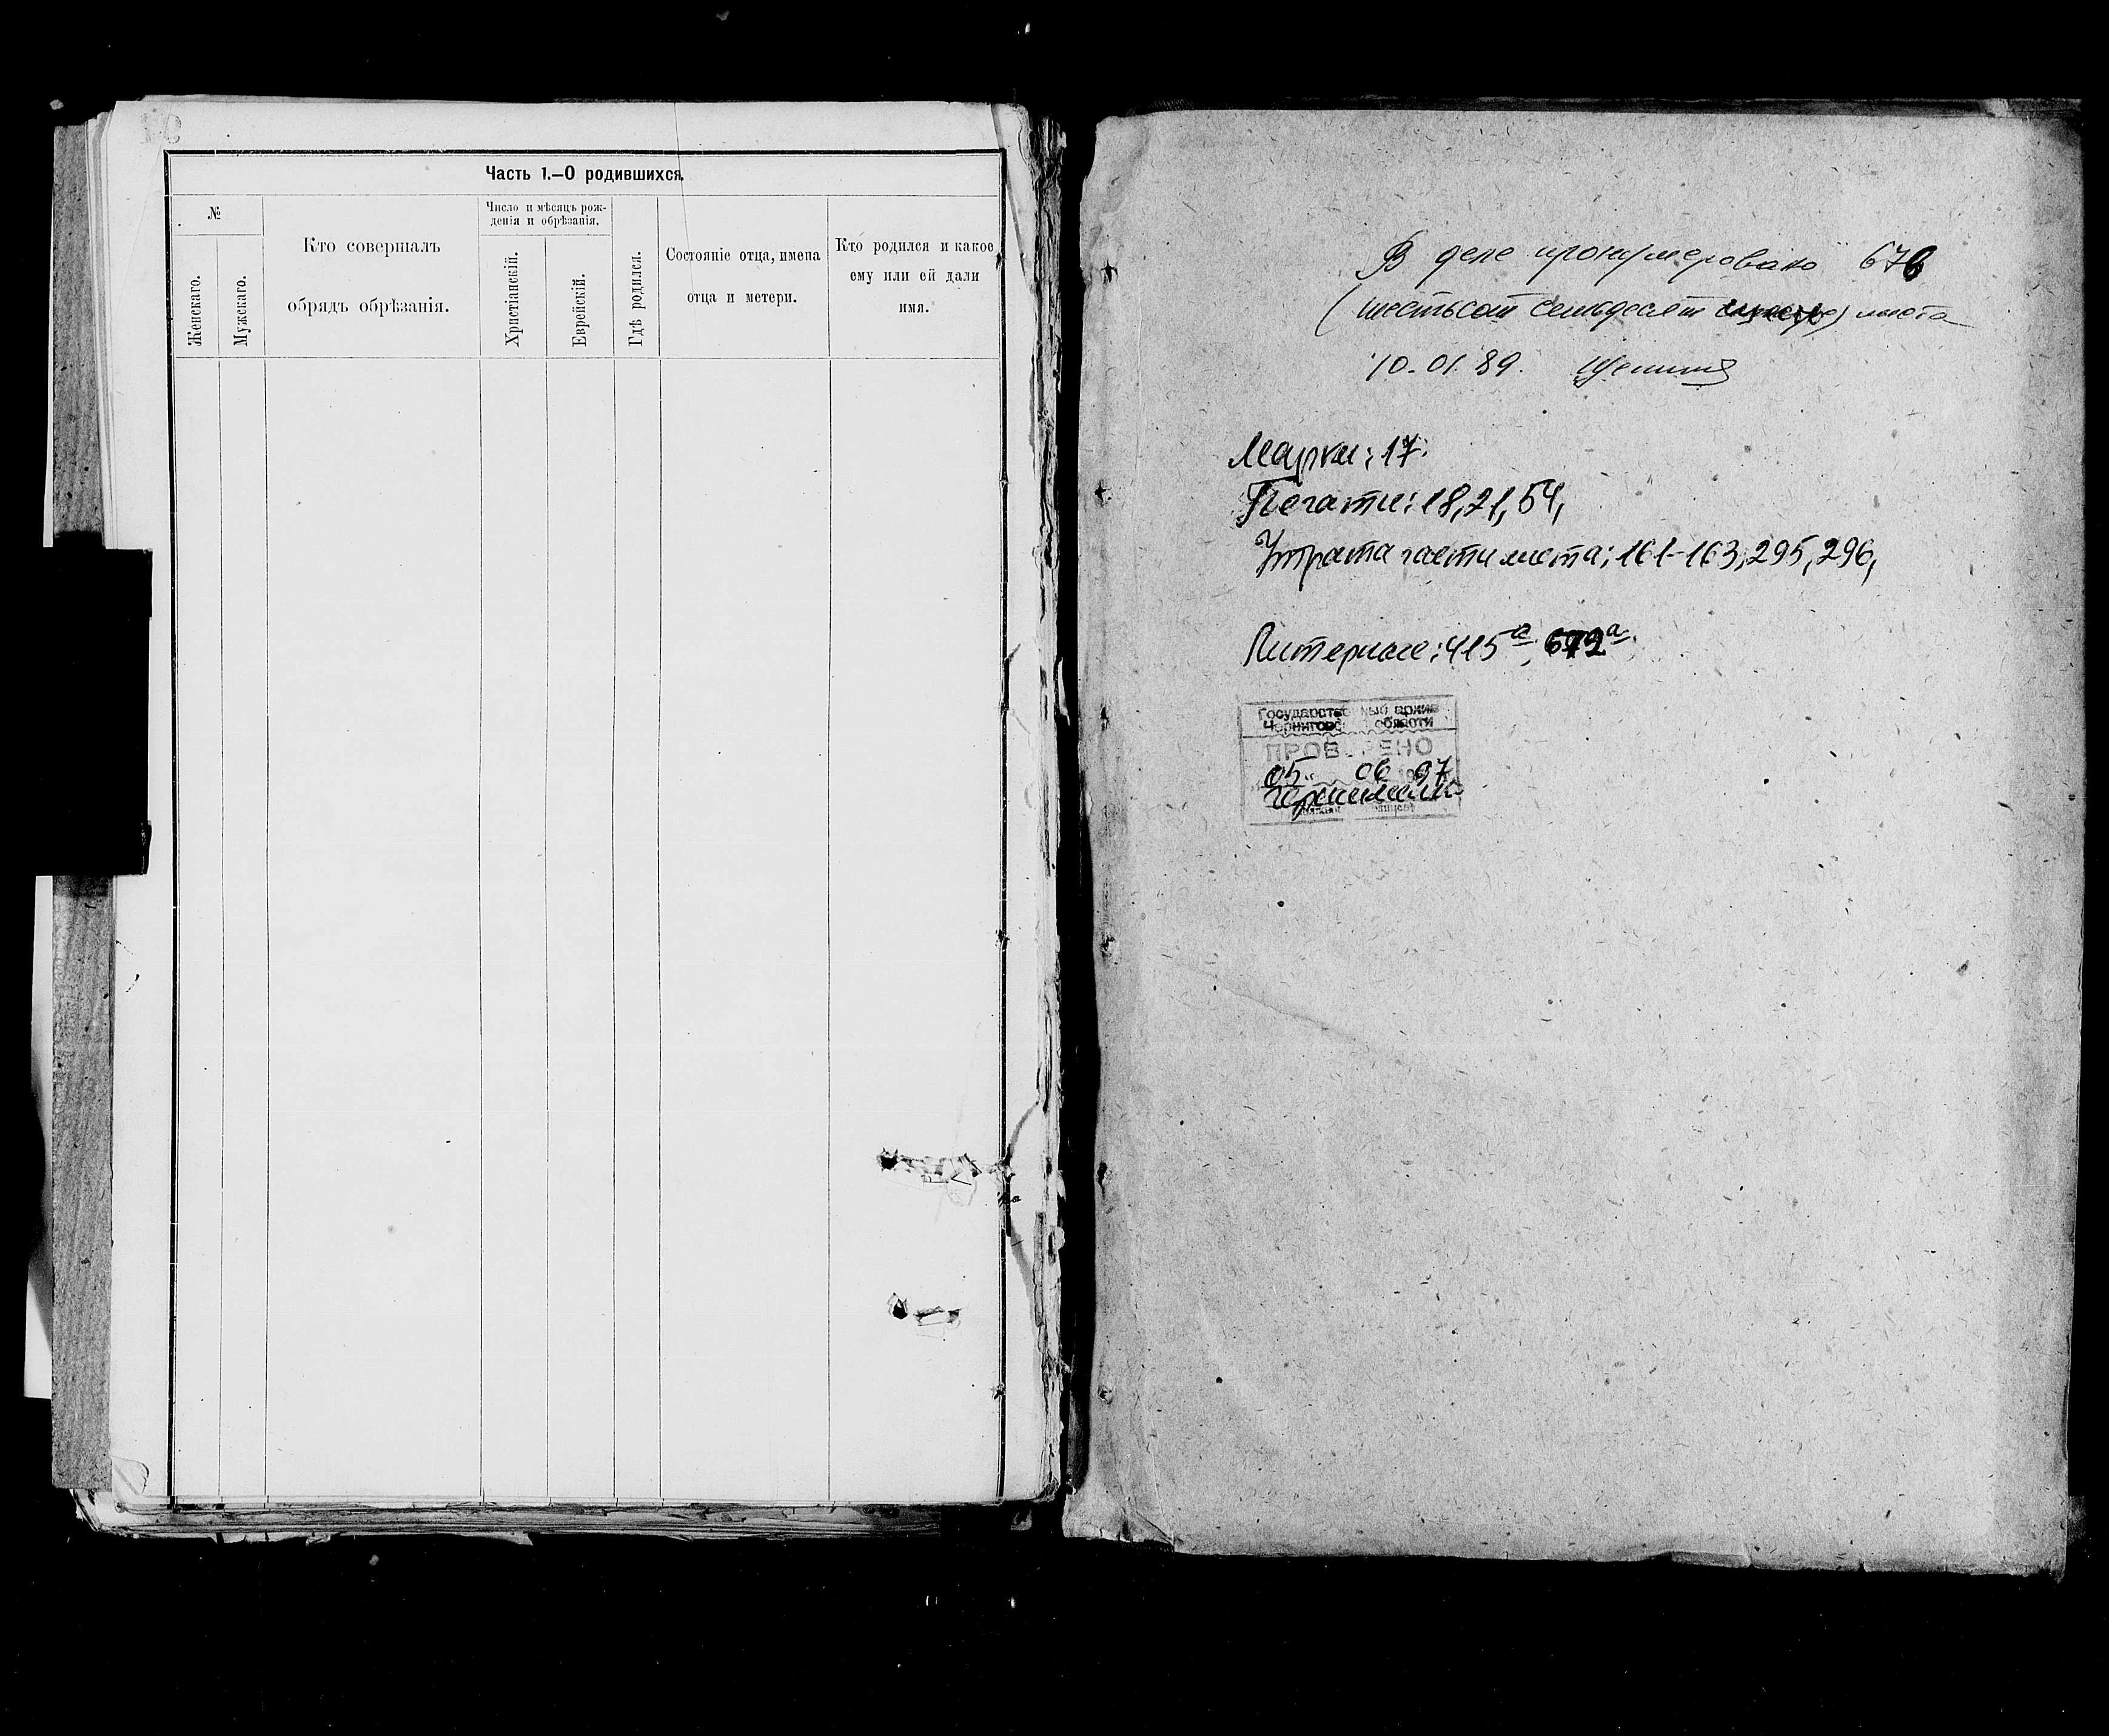 Часть 1.—О родившихся.
№
Женскаго.
Мужскаго.
Кто совершалъ
обрядъ обрѣзанія.
Число и мѣсяцъ рож-
денія и обрѣзанія.
Христіанскій.
Еврейскій.
Гдѣ родился.
Состояніе отца, имена
отца и метери.
Кто родился и какое
ему или ей дали
имя.
В деле пронумеровано 676
(шестьсот семьдесят шесть) листа
10.01.89.
Марки: 17.
Печати: 18, 21, 54,
Утрата части листа: 161-163, 295, 296,
Литерные: 415а, 672а.
Государственный архив
Черниговской области
ПРОВЕРЕНО
05 06 97